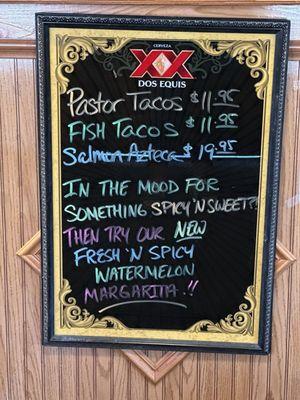 CERVEZA
XX
DOS EQUIS
Pastor Tacos $11.95
FISH Tacos $11.95
Salmon Azteca $19.95
IN THE MOOD FOR
SOMETHING SPICY 'N SWEET?!
THEN TRY OUR NEW
FRESH 'N SPICY
WATERMELON
MARGARITA!!